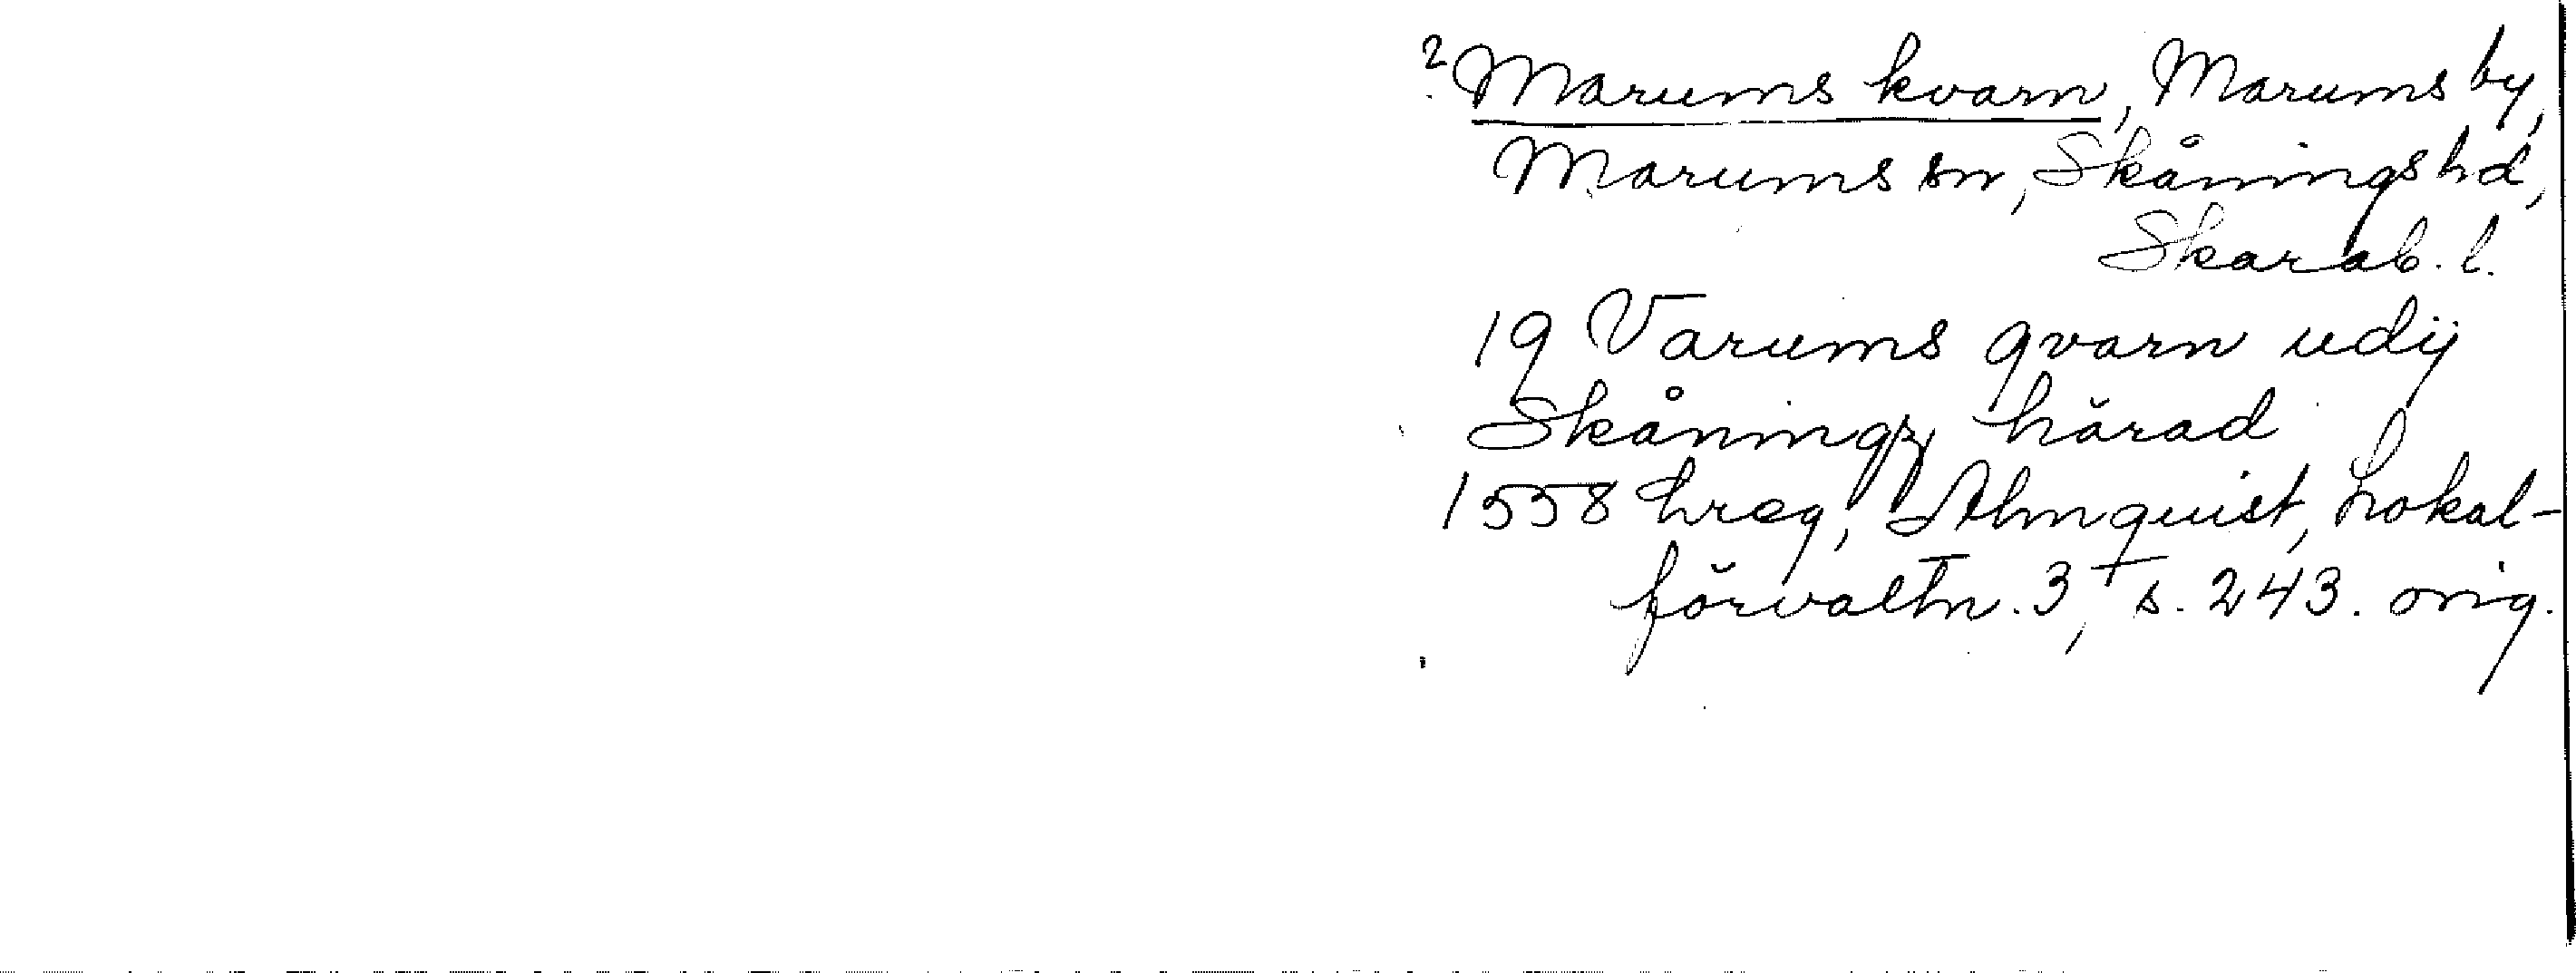 ? Marums kvarn, Marums by,
Marums sn, Skånings hd,
Skarab. l.
19 Varums qvarn udij
Skåningz härad
1558 hreg, Almquist, Lokal-
förvaltn. 3, s. 243. orig.